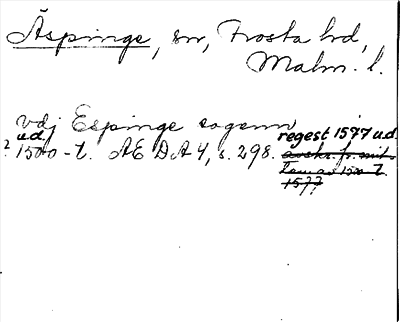 Äspinge, sn, Frosta hd,
Malm. l.
vdj Espinge sogenn
u.d. regest 1577 u.d.
? 1500-t. ÆDA 4, s. 298. avskr. fr. mitt
1500-t.
1577